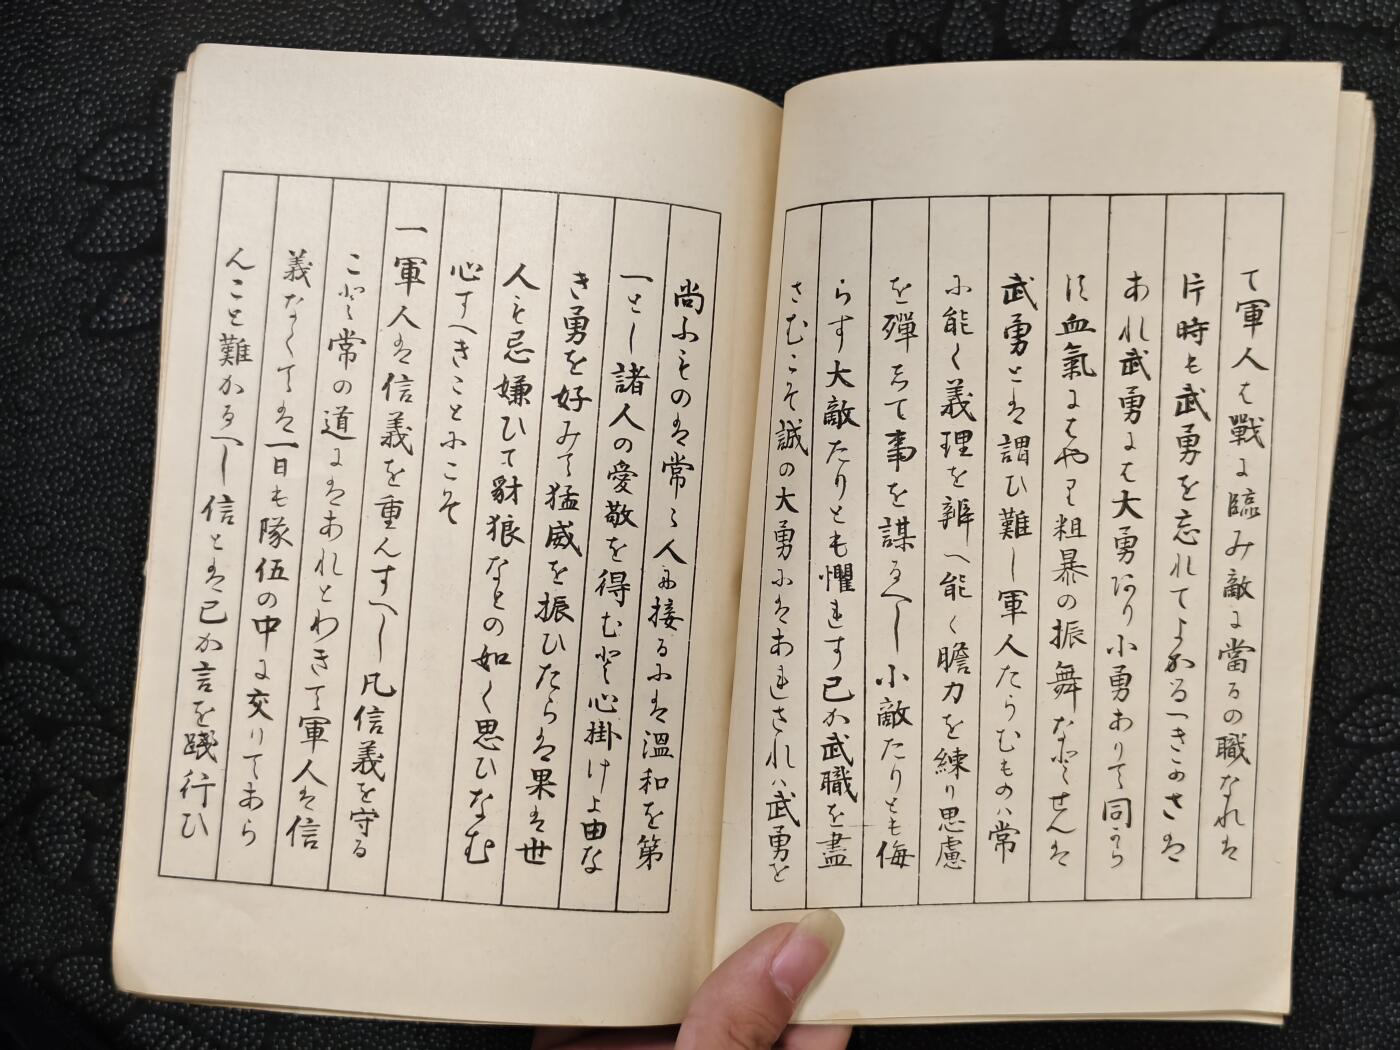 て軍人は戰に臨み敵に當るの職なれは
片時も武勇を忘れてよかるへきかさは
あれ武勇には大勇あり小勇ありて同から
す血氣にはやり粗暴の振舞なとせんは
武勇とは謂ひ難し軍人たらむものハ常
に能く義理を辨へ能く膽力を練り思慮
を殫して事を謀るへし小敵たりとも侮
らす大敵たりとも懼れす己か武職を盡
さむこそ誠の大勇にはあれされハ武勇を
尚ふものは常々人に接るには溫和を第
一とし諸人の愛敬を得むと心掛けよ由な
き勇を好みて猛威を振ひたらは果は世
人も忌嫌ひて豺狼なとの如く思ひなむ
心すへきことにこそ
一軍人は信義を重んすへし凡信義を守る
こと常の道にはあれとわきて軍人は信
義なくては一日も隊伍の中に交りてあら
んこと難かるへし信とは己か言を踐行ひ